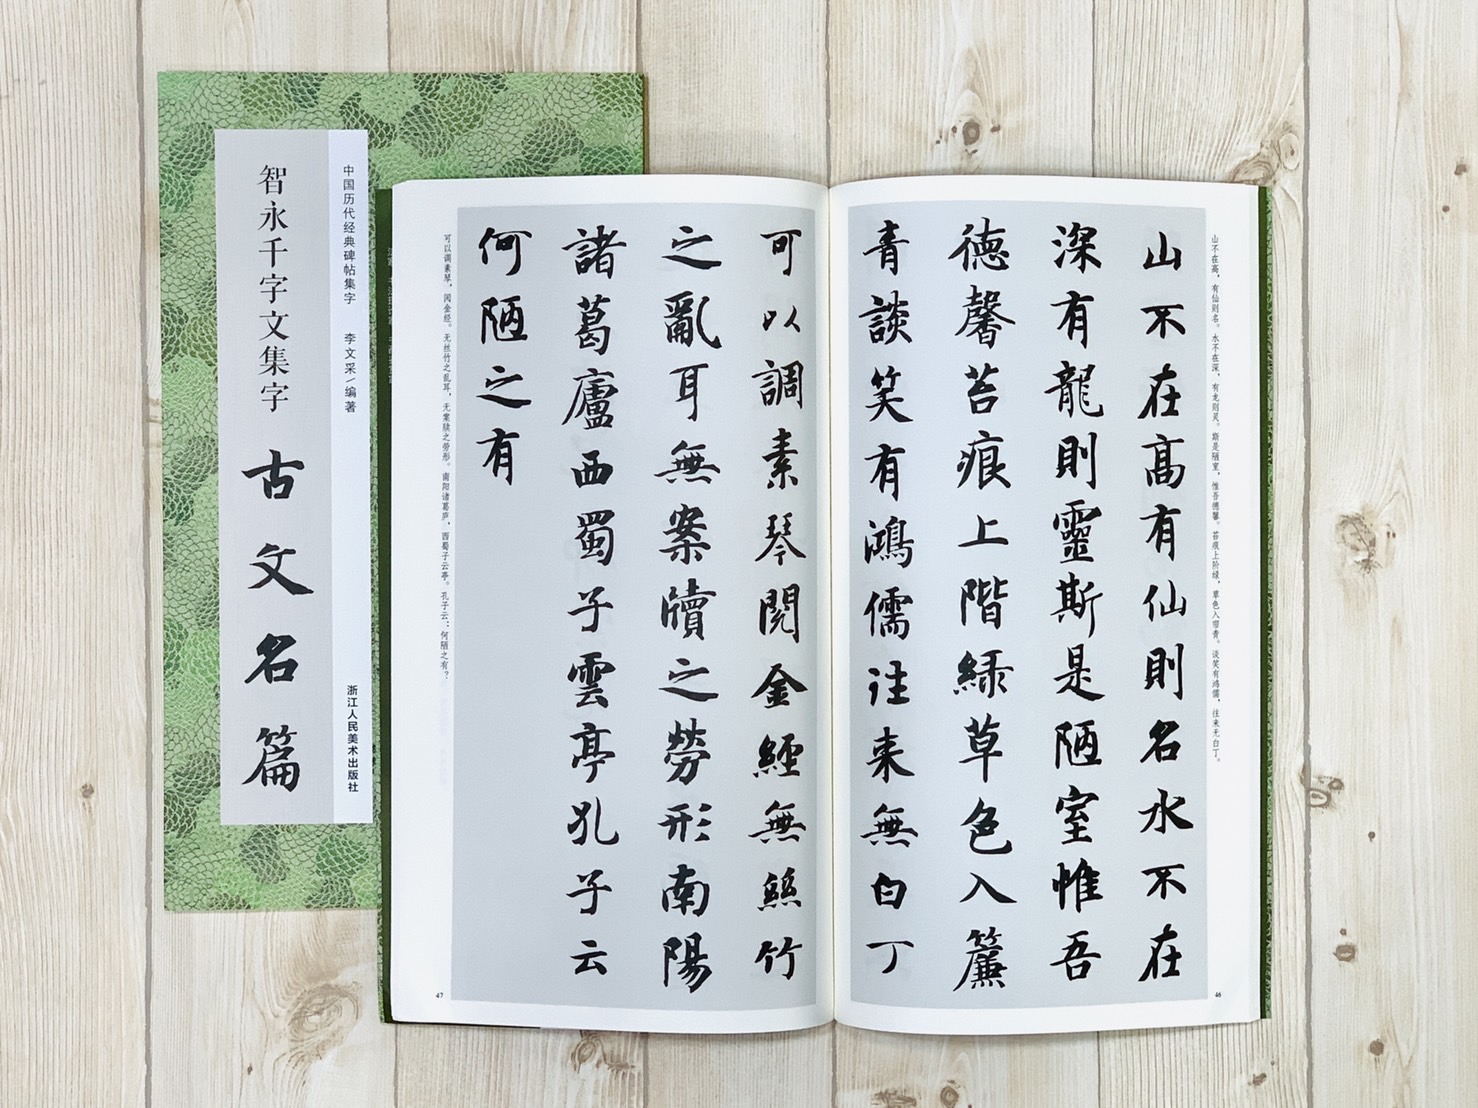 中国历代经典碑帖集字 李文采/编著
浙江人民美术出版社
智永千字文集字
古文名篇
山不在高，有仙则名。水不在深，有龙则灵。斯是陋室，惟吾德馨。苔痕上阶绿，草色入帘青。谈笑有鸿儒，往来无白丁。
山不在高有仙則名水不在
深有龍則靈斯是陋室惟吾
德馨苔痕上階緑草色入簾
青談笑有鴻儒往来無白丁
46
可以調素琴閲金經無絲竹
之亂耳無案牘之勞形南陽
諸葛廬西蜀子雲亭孔子云
何陋之有
可以调素琴，阅金经。无丝竹之乱耳，无案牍之劳形。南阳诸葛庐，西蜀子云亭。孔子云：何陋之有？
47